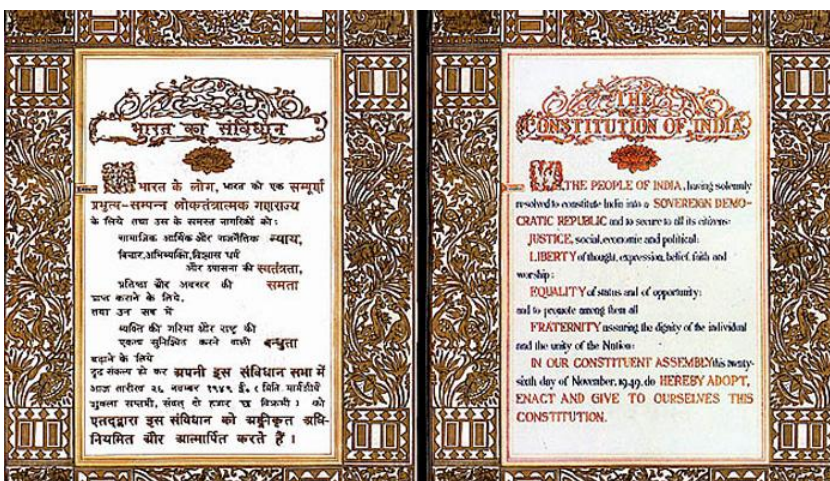 भारत का संविधान
हम भारत के लोग, भारत को एक सम्पूर्ण
प्रभुत्व-सम्पन्न लोकतंत्रात्मक गणराज्य
के लिये तथा उस के समस्त नागरिकों को:
सामाजिक आर्थिक और राजनैतिक न्याय,
विचार,अभिव्यक्ति,विश्वास धर्म
और उपासना की स्वतंत्रता,
प्रतिष्ठा और अवसर की समता
प्राप्त कराने के लिये,
तथा उन सब में
व्यक्ति की गरिमा और राष्ट्र की
एकता सुनिश्चित करने वाली बन्धुता
बढ़ाने के लिये
दृढ़ संकल्प हो कर अपनी इस संविधान सभा में
आज तारीख २६ नवम्बर १९४९ ई. ( मिति मार्गशीर्ष
शुक्ला सप्तमी, संवत् दो हजार छ विक्रमी ) को
एतद्द्वारा इस संविधान को अङ्गीकृत अधि-
नियमित और आत्मार्पित करते हैं ।
THE
CONSTITUTION OF INDIA
WE, THE PEOPLE OF INDIA, having solemnly
resolved to constitute India into a SOVEREIGN DEMO-
CRATIC REPUBLIC and to secure to all its citizens:
JUSTICE, social, economic and political;
LIBERTY of thought, expression, belief, faith and
worship;
EQUALITY of status and of opportunity;
and to promote among them all
FRATERNITY assuring the dignity of the individual
and the unity of the Nation;
IN OUR CONSTITUENT ASSEMBLY this twenty-
sixth day of November, 1949, do HEREBY ADOPT,
ENACT AND GIVE TO OURSELVES THIS
CONSTITUTION.